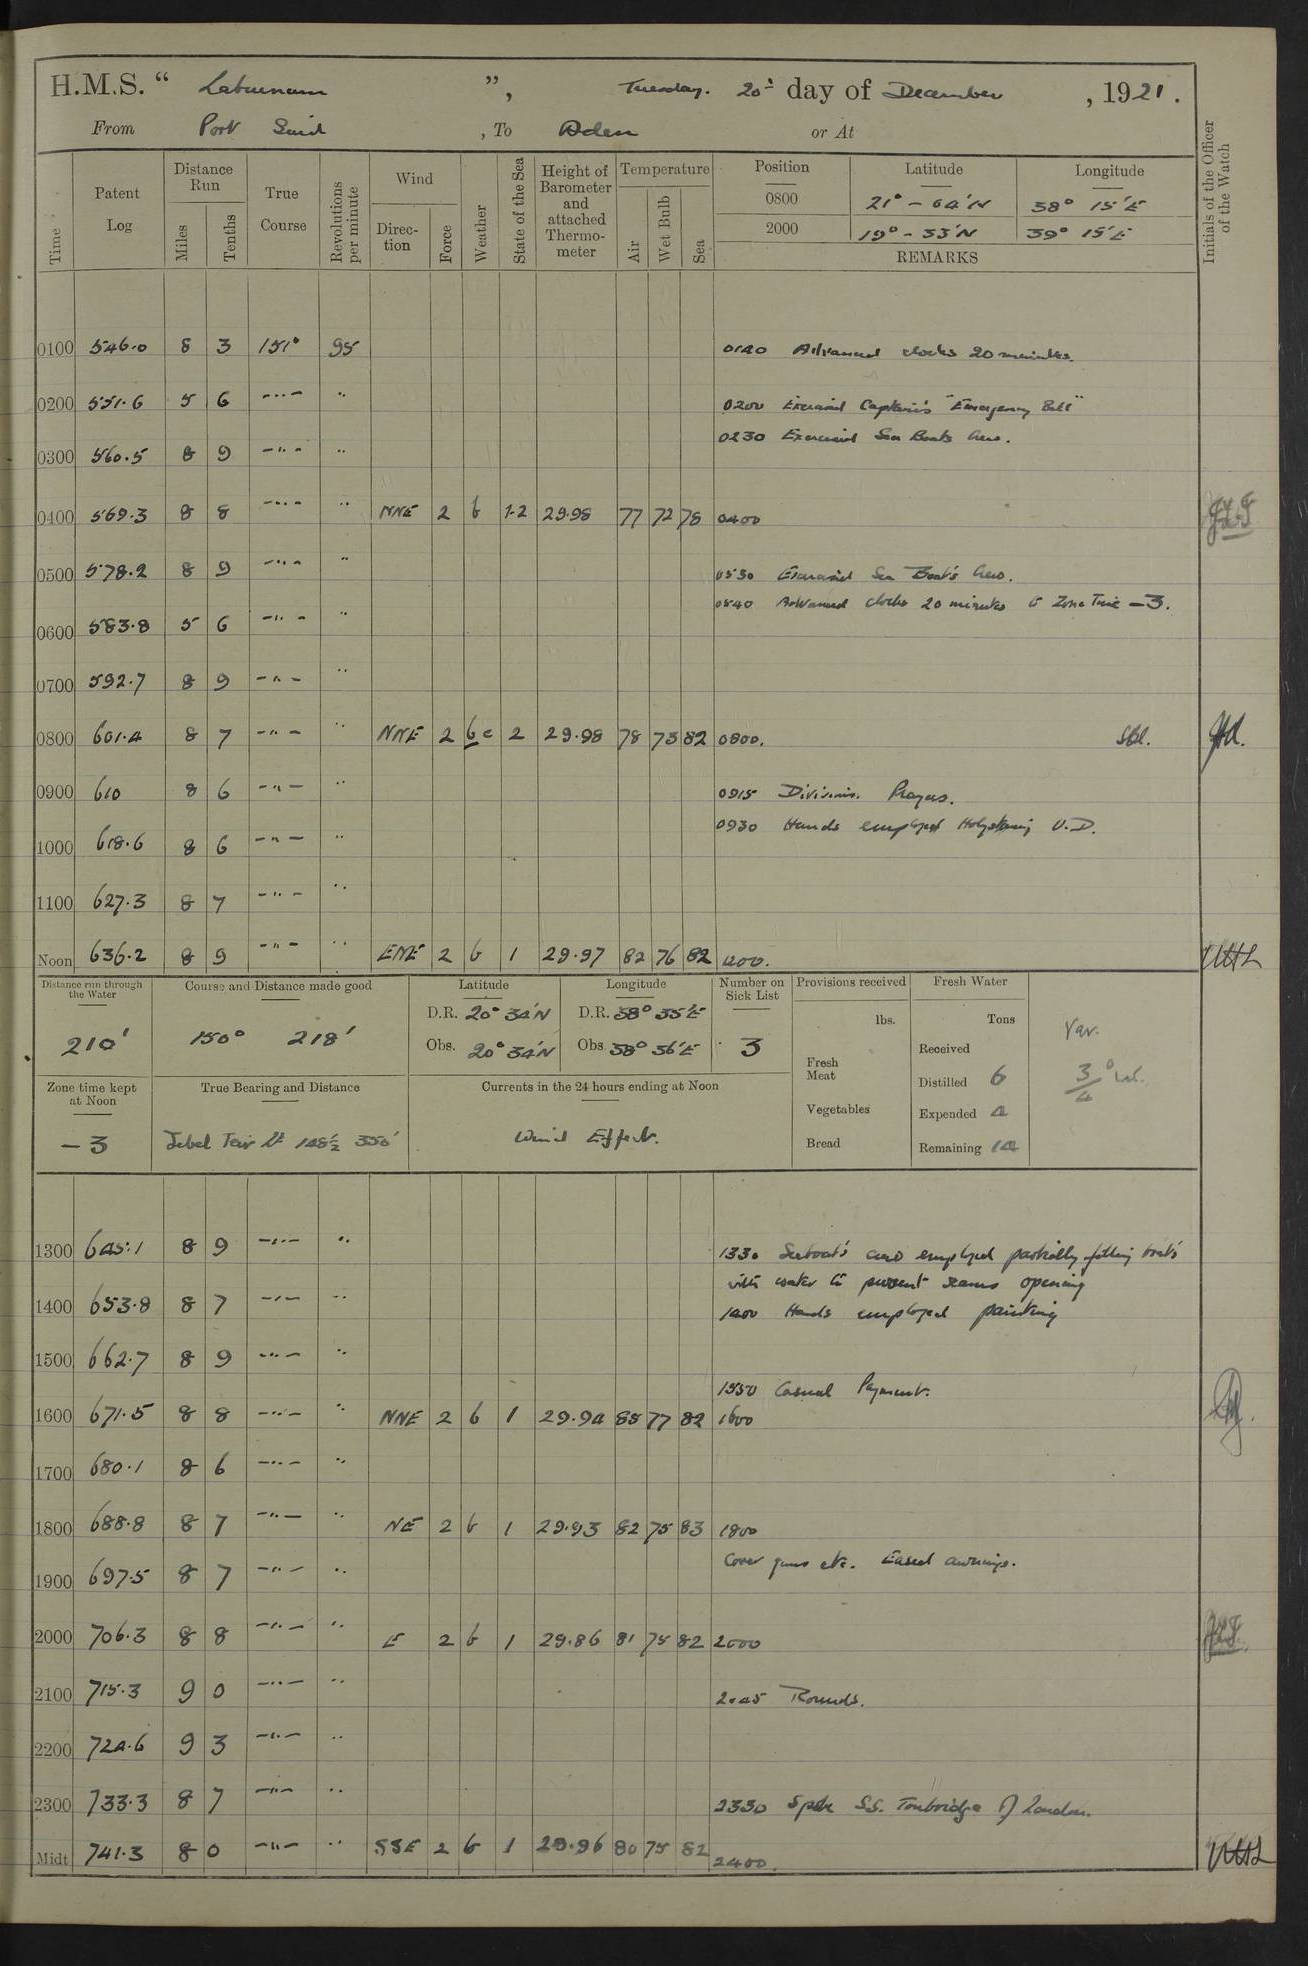 H.M.S. “ Laburnum ”, Tuesday. 20th day of December, 1921.
From Port Said, To Aden or At
Time
Patent Log
Distance Run
Miles
Tenths
True Course
Revolutions per minute
Wind
Direction
Force
Weather
State of the Sea
Height of Barometer and attached Thermometer
Temperature
Air
Wet Bulb
Sea
Position Latitude Longitude
0800 21° - 04'N 38° 15'E
2000 19° - 33'N 39° 15'E
REMARKS
Initials of the Officer of the Watch
0100 546.0 8 3 151° 95 0140 Advanced clocks 20 minutes.
0200 551.6 5 6 -"- " 0200 Exercised Captain's "Emergency Bell"
0230 Exercised Sea Boats Crew.
0300 560.5 8 9 -"- "
0400 569.3 8 8 -"- " NNE 2 b 1.2 29.98 77 72 78 0400
0500 578.2 8 9 -"- " 0530 Exercised Sea Boat's Crew.
0540 Advanced clocks 20 minutes to Zone Time -3.
0600 583.8 5 6 -"- "
0700 592.7 8 9 -"- "
0800 601.4 8 7 -"- " NNE 2 bc 2 29.98 78 73 82 0800.
0900 610 8 6 -"- " 0915 Divisions. Prayers.
0930 Hands employed Holystoning U.D.
1000 618.6 8 6 -"- "
1100 627.3 8 7 -"- "
Noon 636.2 8 9 -"- " ENE 2 b 1 29.97 82 76 82 1200.
Distance run through the Water
210'
Course and Distance made good
150° 218'
Latitude
D.R. 20° 34'N
Obs. 20° 34'N
Longitude
D.R. 38° 35'E
Obs. 38° 36'E
Number on Sick List
3
Provisions received
lbs.
Fresh Meat
Vegetables
Bread
Fresh Water
Tons
Received
Distilled 6
Expended 4
Remaining 14
Var.
3/4°
Zone time kept at Noon
-3
True Bearing and Distance
Jebel Teir Lt 148½ 350'
Currents in the 24 hours ending at Noon
Wind Effect.
1300 645.1 8 9 -"- " 1330 Seaboat's crew employed partially filling boats
with water to prevent seams opening
1400 653.8 8 7 -"- " 1400 Hands employed painting
1500 662.7 8 9 -"- "
1550 Casual Payment.
1600 671.5 8 8 -"- " NNE 2 b 1 29.94 85 77 82 1600
1700 680.1 8 6 -"- "
1800 688.8 8 7 -"- " NE 2 b 1 29.93 82 75 83 1800
Cover guns etc. Eased awnings.
1900 697.5 8 7 -"- "
2000 706.3 8 8 -"- " E 2 b 1 29.86 81 75 82 2000
2100 715.3 9 0 -"- " 2045 Rounds.
2200 724.6 9 3 -"- "
2300 733.3 8 7 -"- " 2330 Spoke S.S. Tonbridge of London.
Midt 741.3 8 0 -"- " SSE 2 b 1 29.96 80 75 82 2400.